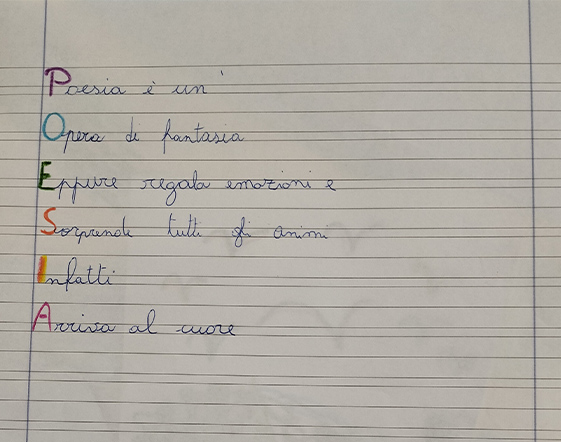 Poesia è un'
Opera di fantasia
Eppure regala emozioni e
Sorprende tutti gli animi
Infatti
Arriva al cuore